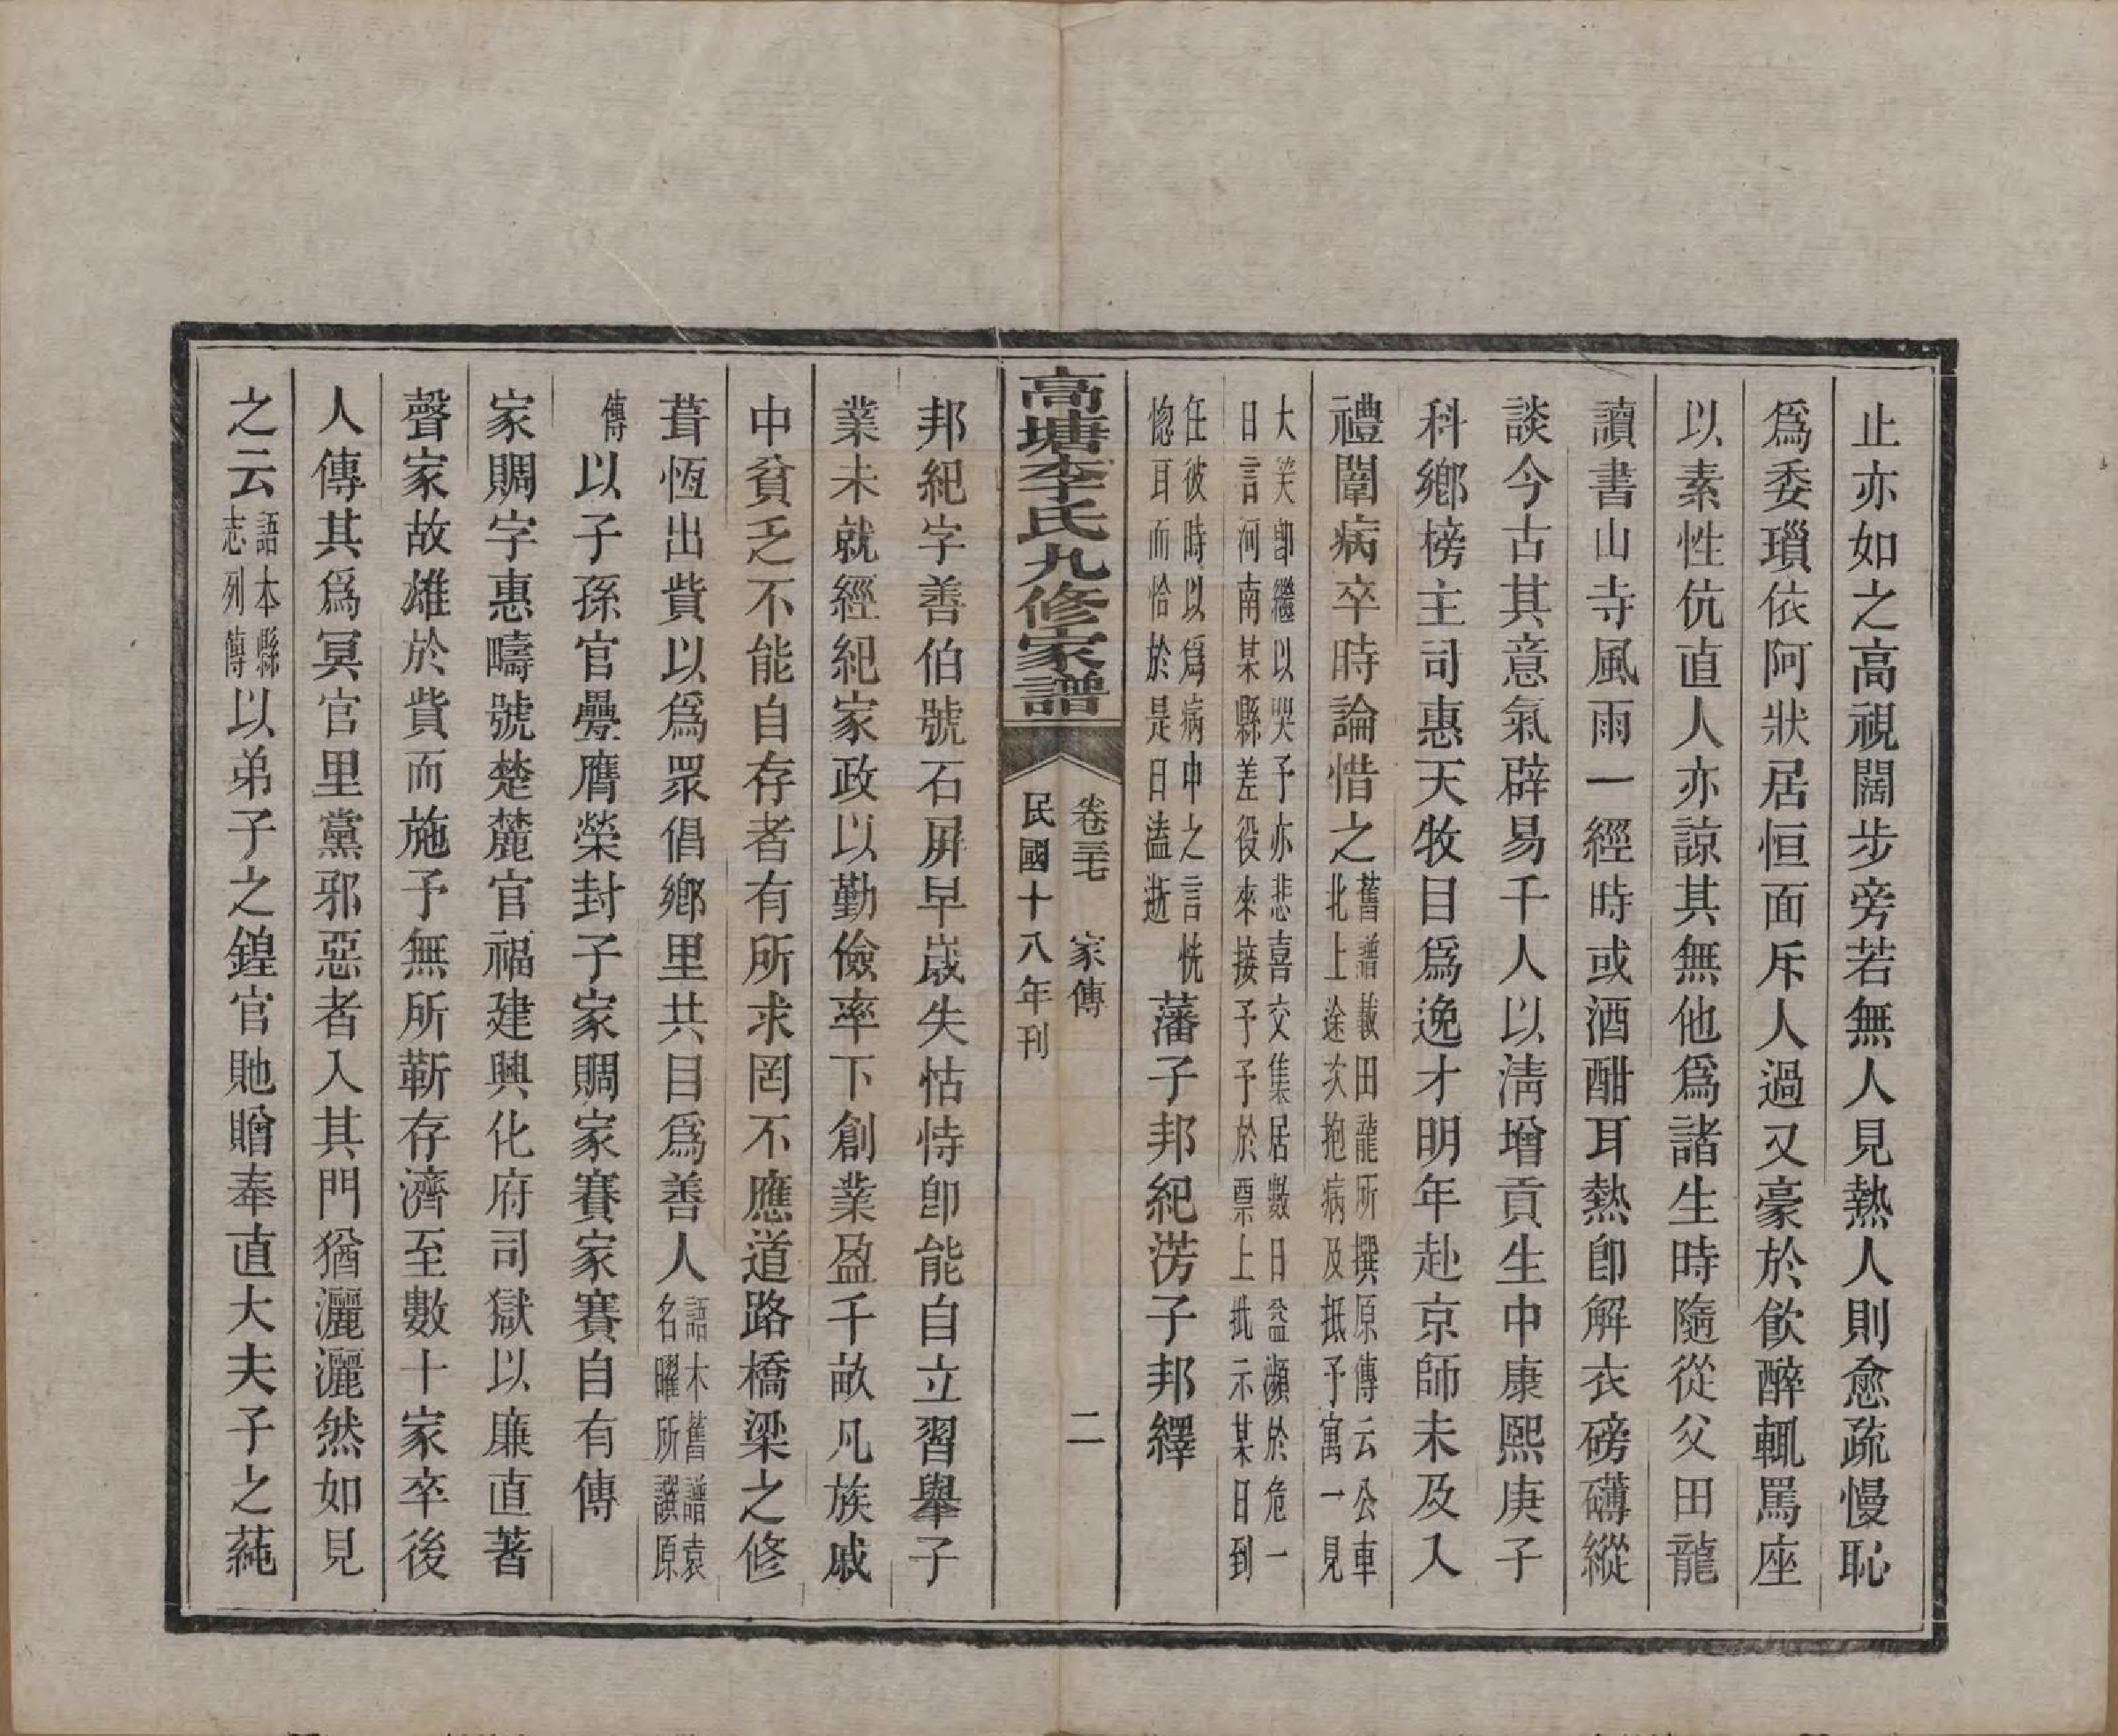 止亦如之高視闊步旁若無人見熱人則愈疏慢恥
爲委瑣依阿狀居恒面斥人過又豪於飮醉輒罵座
以素性伉直人亦諒其無他爲諸生時隨從父田龍
讀書山寺風雨一經時或酒酣耳熱卽解衣磅礴縱
談今古其意氣辟易千人以淸增貢生中康熙庚子
科鄉榜主司惠天牧目爲逸才明年赴京師未及入
禮闈病卒時論惜之
舊譜載田龍所撰原傳云公車
北上途次抱病及抵予寓一見
大笑卽繼以哭予亦悲喜交集居數日益瀕於危一
日言河南某縣差役來接予予於票上批示某日到
任彼時以爲病中之言恍
惚耳而恰於是日溘逝
藩子邦紀涝子邦繹
高塘李氏九修家譜
卷三七 家傳
二
民國十八年刊
邦紀字善伯號石屛早歲失怙恃卽能自立習舉子
業未就經紀家政以勤儉率下創業盈千畝凡族戚
中貧乏不能自存者有所求罔不應道路橋梁之修
葺恆出貲以爲眾倡鄉里共目爲善人
語本舊譜袁
名曜所譔原
傳
以子孫官疊膺榮封子家賙家賽家賽自有傳
家賙字惠疇號楚麓官福建興化府司獄以廉直著
聲家故雄於貲而施予無所靳存濟至數十家卒後
人傳其爲冥官里黨邪惡者入其門猶灑灑然如見
之云
語本縣
志列傳
以弟子之鍠官貤贈奉直大夫子之蒓